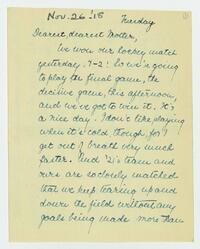 Nov. 26 '18 Tuesday
Dearest dearest Mother,
We won our hockey match
yesterday. 7-2! So we're going
to play the final game, the
decisive game, this afternoon,
and we've got to win it. It's
a nice day. I don't like playing
when it's cold, though for I
get out of breath very much
faster. And '21's team and
ours are so closely matched
that we keep tearing up and
down the field without any
goals being made more than